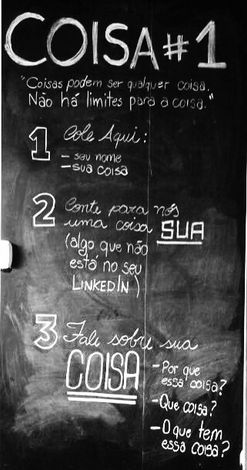 COISA #1
"Coisas podem ser qualquer coisa.
Não há limites para a coisa."
1 Cole Aqui:
- seu nome
- sua coisa
2 Conte para nós
uma coisa SUA
(algo que não
está no seu
LINKEDIN)
3 Fale sobre sua
COISA
- Por que
essa coisa?
- Que coisa?
- O que tem
essa coisa?